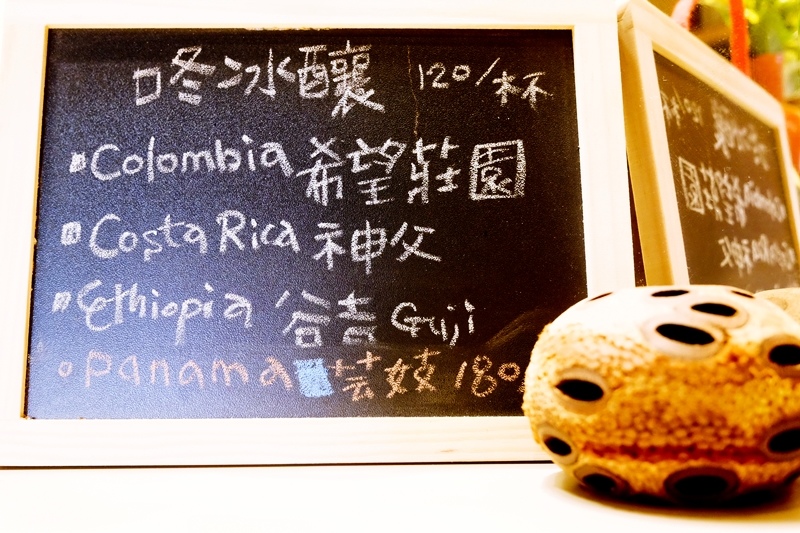 咚冰釀 120/杯
Colombia 希望莊園
Costa Rica 神父
Ethiopia 谷吉 Guji
Panama 芸妓 180